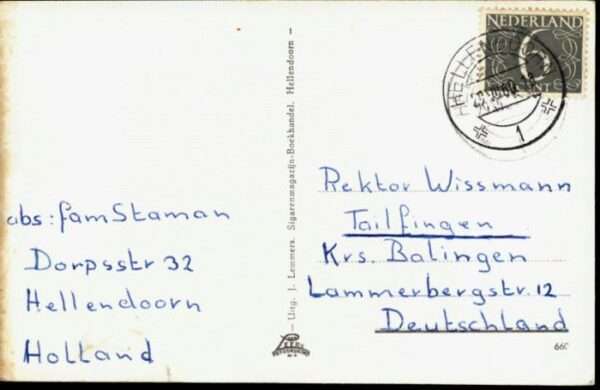 NEDERLAND
6
CENT
HELLEN
1
abs: fam Staman
Dorpsstr 32
Hellendoorn
Holland
— Uitg. J. Lemmers. Sigarenmagazijn-Boekhandel. Hellendoorn —
Rektor Wissmann
Tailfingen
Krs. Balingen
Lammerbergstr. 12
Deutschland
660